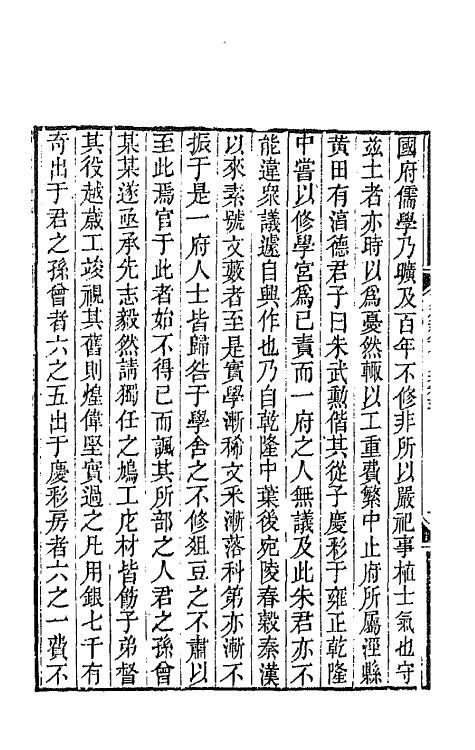 國府儒學乃曠及百年不修非所以嚴祀事植士氣也守
茲土者亦時以爲憂然輙以工重費繁中止府所屬涇縣
黃田有湻德君子曰朱武勲偕其從子慶彩于雍正乾隆
中嘗以修學宮爲己責而一府之人無議及此朱君亦不
能違衆議遽自興作也乃自乾隆中葉後宛陵春穀秦漢
以來素號文藪者至是實學漸稀文釆漸落科第亦漸不
振于是一府人士皆歸咎于學舍之不修俎豆之不肅以
至此焉官于此者始不得已而諷其所部之人君之孫曾
某某遂亟承先志毅然請獨任之鳩工庀材皆飭子弟督
其役越歲工竣視其舊則煌偉堅實過之凡用銀七千有
奇出于君之孫曾者六之五出于慶彩房者六之一費不